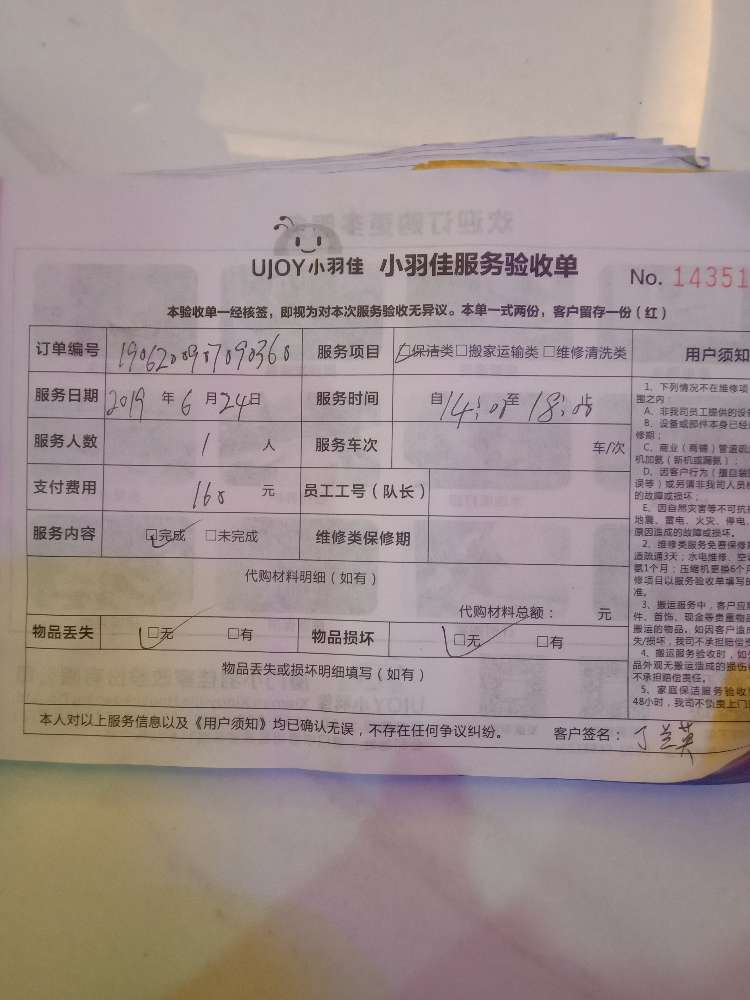 UJOY小羽佳 小羽佳服务验收单
No. 14351
本验收单一经核签，即视为对本次服务验收无异议。本单一式两份，客户留存一份（红）
订单编号 服务项目 □保洁类□搬家运输类□维修清洗类 用户须知
服务日期 2019 年 6 月 24日 服务时间 自14:00至18:00
服务人数 1 人 服务车次 车/次
支付费用 160 元 员工工号（队长）
服务内容 □完成 □未完成 维修类保修期
代购材料明细（如有）
代购材料总额： 元
物品丢失 □无 □有 物品损坏 □无 □有
物品丢失或损坏明细填写（如有）
本人对以上服务信息以及《用户须知》均已确认无误，不存在任何争议纠纷。 客户签名：丁兰英
1、下列情况不在维修项
围之内：
A、非我司员工提供的设
B、设备或部件本身已经
修期；
C、商业（商铺）管道疏
机加氨（新机或漏氨）；
D、因客户行为（擅自装
误等）或另请非我司人员
的故障或损坏；
E、因自然灾害等不可抗
地震、雷电、火灾、停电
原因造成的故障或损坏。
2、维修类服务免费保修
道疏通3天；水电维修、空
氨1个月；压缩机更换6个月
修项目以服务验收单填写的
准。
3、搬运服务中，客户应
件、首饰、现金等贵重物品
搬运的物品。如因客户造成
失/损坏，我司不承担赔偿责
4、搬运服务验收时，如
品外观无搬运造成的损伤
不承担赔偿责任。
5、家庭保洁服务验收
48小时，我司不负责上门